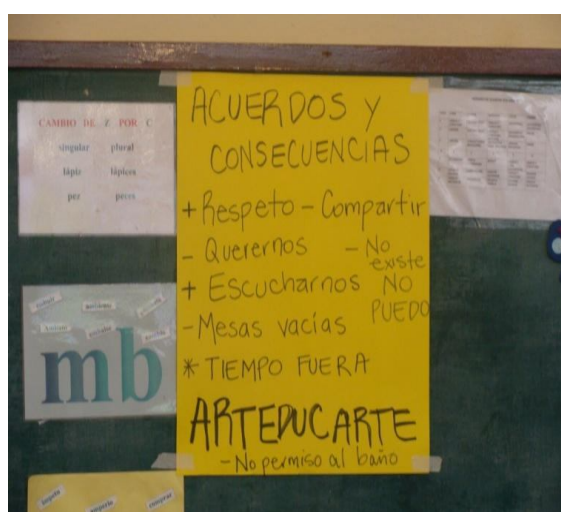 CAMBIO DE Z POR C
singular plural
lápiz lápices
pez peces
ACUERDOS Y
CONSECUENCIAS
+ Respeto - Compartir
- Querernos - No existe
+ Escucharnos NO PUEDO
- Mesas vacías
* TIEMPO FUERA
ARTEDUCARTE
- No permiso al baño
mb